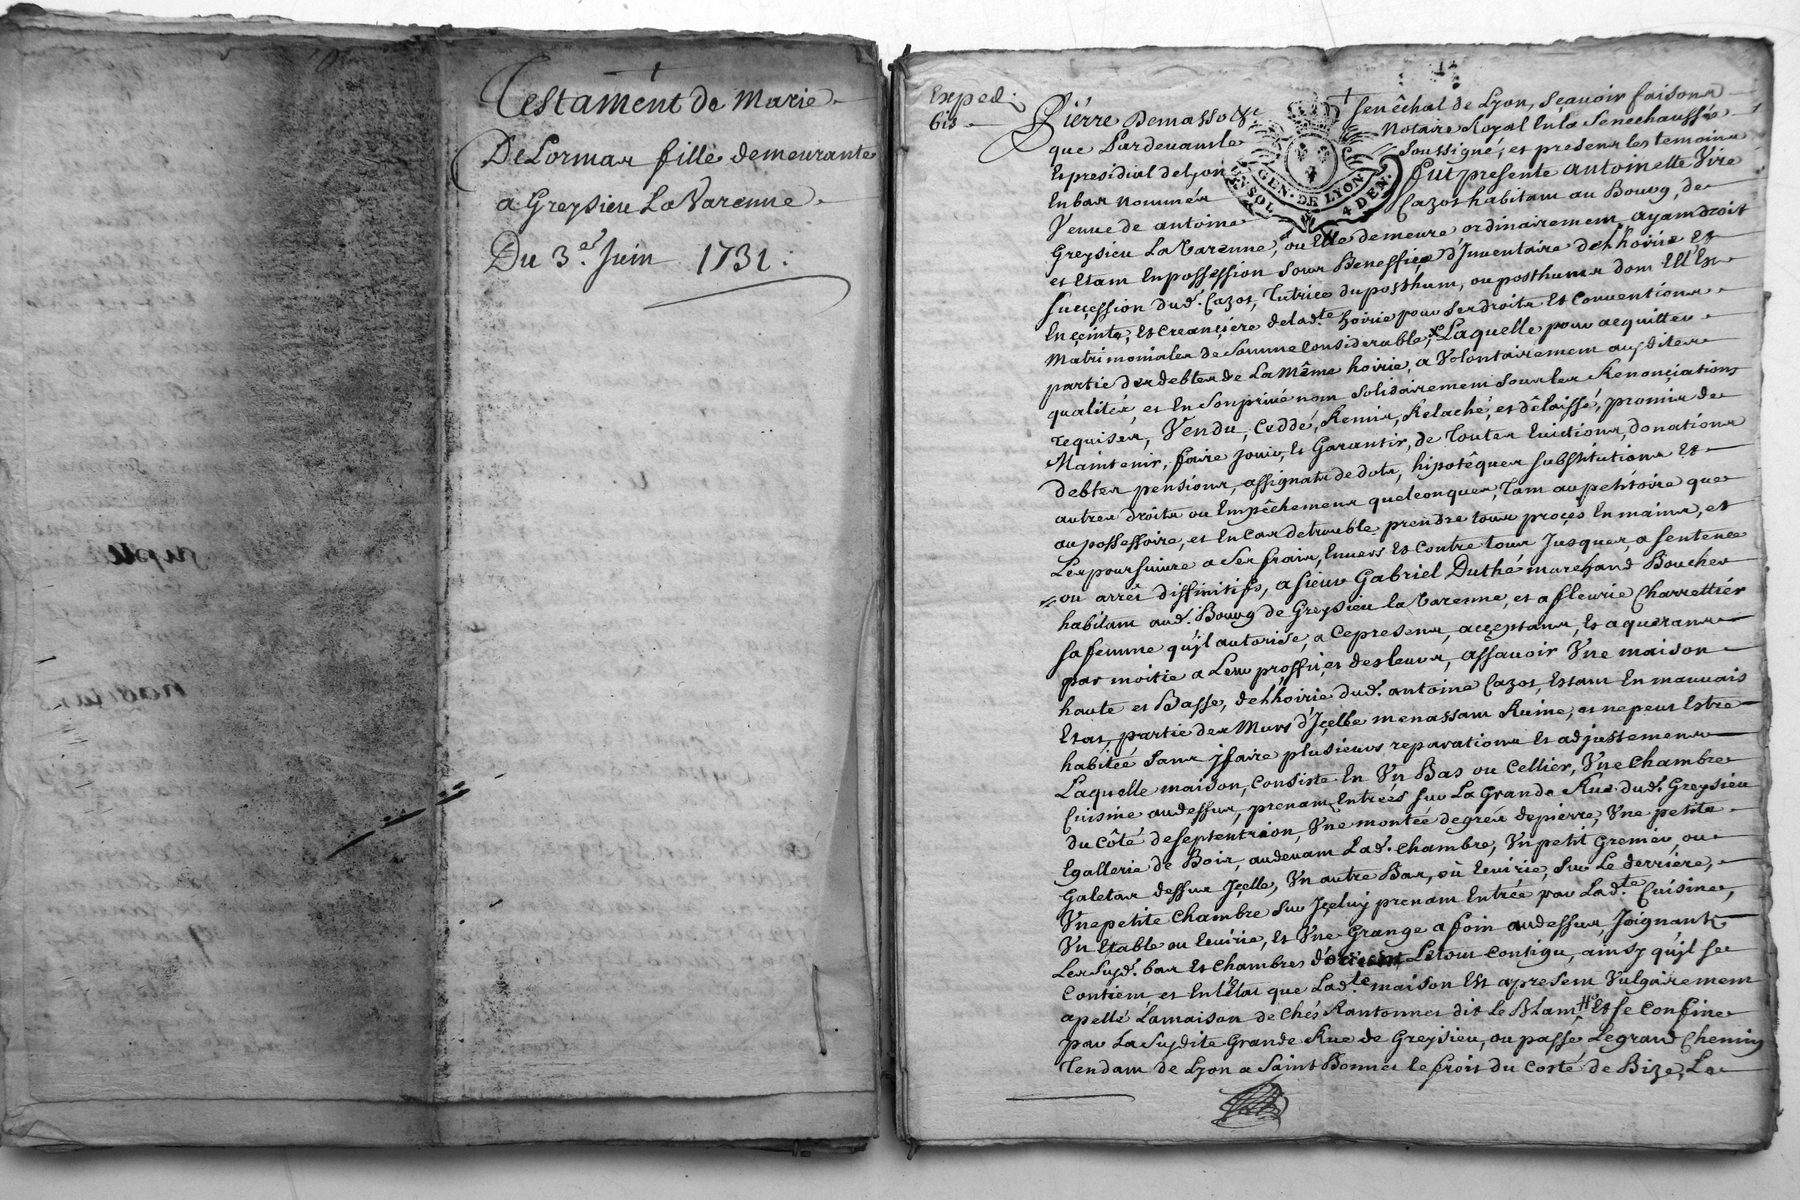 Testament de Marie
DeLormas fille demeurante
a Greysieu La Varenne
Du 3.e Juin 1731.
Exped.
613
Pierre Demasso &c senêchal de Lyon, sçavoir faisons
que Pardevant le Notaire Royal en la Senechaussée
et presidial de Lyon soussigné, et presens les temoins
en bas nommés fut presente antoinette Viré
Veuve de antoine Cazot habitant au Bourg de
GEN. DE LYON
UN SOL 4 DEN.
Greysieu La Varenne, ou Elle demeure ordinairement ayant droit
et Etant en possession sous Beneffice d'Inventaire de L'hoirie et
succession dud. Cazot, Tutrice du posthum, ou posthume dont Ell'Est
Enceinte, et creançiere delad.te hoirie pour ses droits et Conventions
Matrimoniales de somme Considerable, Laquelle pour acquitter
partie des debtes de La Même hoirie, a Volontairement ausdites
qualités, et en son privé nom solidairement sous les Renonçiations
requises, Vendu, Ceddé, Remis, Relaché, et dêlaissé, promis de
Maintenir, faire jouir, et Garantir, de Toutes Evictions, donations
debtes pensions, assignats de dots, hipotêques substitutions et
autres droits ou Empêchemens quelconques, Tant au petitoire que
au possessoire, et en Cas de trouble prendre tous proçés en mains, et
Les poursuivre a ses frais, Envers et Contre tous, Jusques, a sentence
ou arrêt diffinitifs, a sieur Gabriel Duthé marchand Boucher
habitant aud. Bourg de Greysieu la Varenne, et a fleurie Charrettier
sa femme qu'il autorise, a Ce presens, acçeptans, et aquerans
par moitié a Leur proffit, et des leurs, assavoir Vne maison
haute et Basse, de L'hoirie dud. antoine Cazot, Estant En mauvais
Etat, partie des Murs d'Jçelle menassant Ruine, et ne peut Estre
habitée sans y faire plusieurs reparations et adjustemens
Laquelle maison, Consiste en Vn Bas ou Cellier, Vne Chambre
Cuisine audessus, prenant Entrées sur La Grande Rue dud. Greysieu
du Côté de septentrion, Vne montée degrés de pierre, Vne petite
Egallerie de Bois, audevant Lad. Chambre, Vn petit Grenier, ou
Galetas dessus Jçelle, Vn autre Bas, ou Ecuirie, sur Le derriére,
Vne petite Chambre sur Jçeluy prenant Entrée par Lad.te Cuisine,
Vn Etable ou Ecuirie, et Vne Grange a foin audessus, Joignants
Les susd. bas et Chambres Le tout Contigu, ainsy qu'il se
Contient, et en l'Etat que Lad.te maison Est apresent Vulgairement
apellé Lamaison de Chés Rantonnet dit Le Blanc Et se Confine
par La susdite Grande Rue de Greysieu, ou passe Le grand Chemin
Tendant de Lyon a Saint Bonnet le froit du Costé de Bize, Le